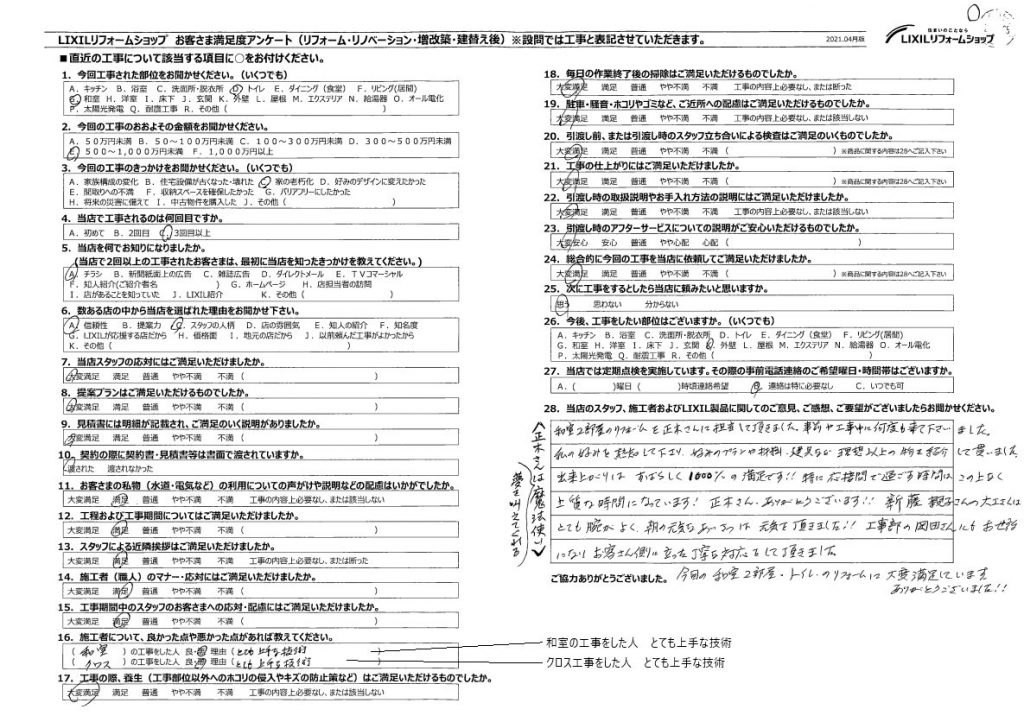 LIXILリフォームショップ お客さま満足度アンケート(リフォーム・リノベーション・増改築・建替え後)※設問では工事と表記させていただきます。
2021.04月版
住まいのことなら
LIXILリフォームショップ
■直近の工事について該当する項目に○をお付けください。
1. 今回工事された部位をお聞かせください。(いくつでも)
A. キッチン B. 浴室 C. 洗面所・脱衣所 D. トイレ E. ダイニング(食堂) F. リビング(居間)
G. 和室 H. 洋室 I. 床下 J. 玄関 K. 外壁 L. 屋根 M. エクステリア N. 給湯器 O. オール電化
P. 太陽光発電 Q. 耐震工事 R. その他( )
2. 今回の工事のおおよその金額をお聞かせください。
A. 50万円未満 B. 50~100万円未満 C. 100~300万円未満 D. 300~500万円未満
E. 500~1,000万円未満 F. 1,000万円以上
3. 今回の工事のきっかけをお聞かせください。(いくつでも)
A. 家族構成の変化 B. 住宅設備が古くなった・壊れた C. 家の老朽化 D. 好みのデザインに変えたかった
E. 間取りへの不満 F. 収納スペースを確保したかった G. バリアフリーにしたかった
H. 将来の災害に備えて I. 中古物件を購入した J. その他( )
4. 当店で工事されるのは何回目ですか。
A. 初めて B. 2回目 C. 3回目以上
5. 当店を何でお知りになりましたか。
(当店で2回以上の工事されたお客さまは、最初に当店を知ったきっかけを教えてください。)
A. チラシ B. 新聞紙面上の広告 C. 雑誌広告 D. ダイレクトメール E. TVコマーシャル
F. 知人紹介(ご紹介者名 ) G. ホームページ H. 店担当者の訪問
I. 店があることを知っていた J. LIXIL紹介 K. その他( )
6. 数ある店の中から当店を選ばれた理由をお聞かせ下さい。
A. 信頼性 B. 提案力 C. スタッフの人柄 D. 店の雰囲気 E. 知人の紹介 F. 知名度
G. LIXILが応援する店だから H. 価格面 I. 地元の店だから J. 以前頼んだ工事がよかったから
K. その他( )
7. 当店スタッフの応対にはご満足いただけましたか。
大変満足 満足 普通 やや不満 不満( )
8. 提案プランはご満足いただけるものでしたか。
大変満足 満足 普通 やや不満 不満( )
9. 見積書には明細が記載され、ご満足のいく説明がありましたか。
大変満足 満足 普通 やや不満 不満( )
10. 契約の際に契約書・見積書等は書面で渡されていますか。
渡された 渡されなかった
11. お客さまの私物(水道・電気など)の利用についての声がけや説明などの配慮はいかがでしたか。
大変満足 満足 普通 やや不満 不満 工事の内容上必要なし、または該当なし
12. 工程および工事期間についてはご満足いただけましたか。
大変満足 満足 普通 やや不満 不満( )
13. スタッフによる近隣挨拶はご満足いただけましたか。
大変満足 満足 普通 やや不満 不満 工事の内容上必要なし、または断った
14. 施工者(職人)のマナー・応対にはご満足いただけましたか。
大変満足 満足 普通 やや不満 不満( )
15. 工事期間中のスタッフのお客さまへの応対・配慮にはご満足いただけましたか。
大変満足 満足 普通 やや不満 不満( )
16. 施工者について、良かった点や悪かった点があれば教えてください。
( 和室 )の工事をした人 良・悪 理由(とても上手な技術 )
( クロス )の工事をした人 良・悪 理由(とても上手な技術 )
和室の工事をした人 とても上手な技術
クロス工事をした人 とても上手な技術
17. 工事の際、養生(工事部位以外へのホコリの侵入やキズの防止策など)はご満足いただけるものでしたか。
大変満足 満足 普通 やや不満 不満 工事の内容上必要なし、または該当しない
18. 毎日の作業終了後の掃除はご満足いただけるものでしたか。
大変満足 満足 普通 やや不満 不満 工事の内容上必要なし、または断った
19. 駐車・騒音・ホコリやゴミなど、ご近所への配慮はご満足いただけるものでしたか。
大変満足 満足 普通 やや不満 不満 工事の内容上必要なし、または該当しない
20. 引渡し前、または引渡し時のスタッフ立ち合いによる検査はご満足のいくものでしたか。
大変満足 満足 普通 やや不満 不満( ) ※商品に関する内容は28へご記入下さい
21. 工事の仕上がりにはご満足いただけましたか。
大変満足 満足 普通 やや不満 不満( ) ※商品に関する内容は28へご記入下さい
22. 引渡し時の取扱説明やお手入れ方法の説明にはご満足いただけましたか。
大変満足 満足 普通 やや不満 不満 工事の内容上必要なし、または該当しない
23. 引渡し時のアフターサービスについての説明がご安心いただけるものでしたか。
大変安心 安心 普通 やや心配 心配( )
24. 総合的に今回の工事を当店に依頼してご満足いただけましたか。
大変満足 満足 普通 やや不満 不満( ) ※商品に関する内容は28へご記入下さい
25. 次に工事をするとしたら当店に頼みたいと思いますか。
思う 思わない 分からない
26. 今後、工事をしたい部位はございますか。(いくつでも)
A. キッチン B. 浴室 C. 洗面所・脱衣所 D. トイレ E. ダイニング(食堂) F. リビング(居間)
G. 和室 H. 洋室 I. 床下 J. 玄関 K. 外壁 L. 屋根 M. エクステリア N. 給湯器 O. オール電化
P. 太陽光発電 Q. 耐震工事 R. その他( )
27. 当店では定期点検を実施しています。その際の事前電話連絡のご希望曜日・時間帯はございますか。
A. ( )曜日( )時頃連絡希望 B. 連絡は特に必要なし C. いつでも可
28. 当店のスタッフ、施工者およびLIXIL製品に関してのご意見、ご感想、ご要望がございましたらお聞かせください。
和室2部屋のリフォームを正木さんに担当して頂きました。事前や工事中に何度も来て下さいました。
私の好みを熟知して下さり、好みのプランや材料、建具など理想以上の物を紹介して貰いました。
出来上がりは すばらしく1000%の満足です!! 特に応接間で過ごす時間はこの上なく
上質な時間になっています! 正木さん、ありがとうございます!! 新藤 親子さんの大工さんは
とても腕がよく、朝の元気なあいさつは 元気を頂きました!! 工事部の岡田さんにもお世話
になりお客さん側に立った丁寧な対応をして頂きました
〈正木さんは魔法使い〉
夢を叶えてくれる
ご協力ありがとうございました。
今回の和室2部屋・トイレのリフォームに大変満足しています
ありがとうございました!!